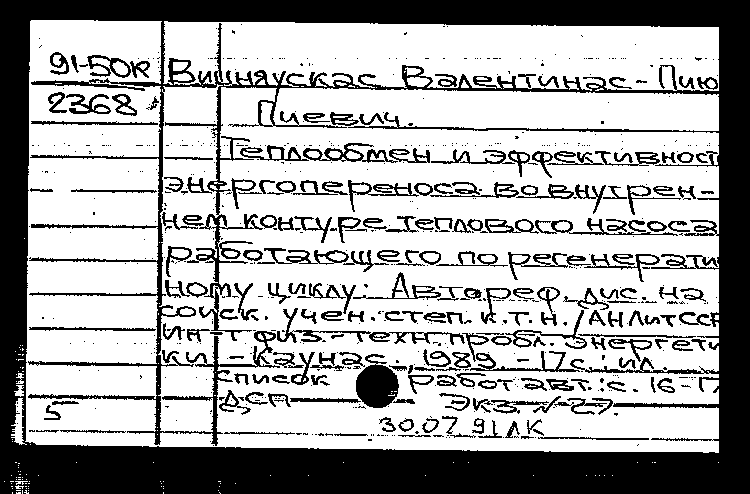 91-50К Вишняускас Валентинас-Пию
2368 Пиевич.
Теплообмен и эффективност
энергопереноса во внутрен-
нем контуре теплового насоса
работающего по регенерати
ному циклу: Автореф. дис. на
соиск. учен. степ. к.т.н. /АН ЛитССР
Ин-т физ.-техн. пробл. энергети
ки. - Каунас, 1989. - 17с.: ил.
Список работ авт.: с. 16-17
5 ДСП Экз. N 27.
30.07.91 ЛК